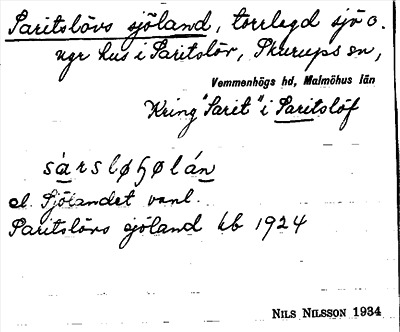 Saritslövs sjöland, torrlagd sjö o.
ngr hus i Saritslöv, Skurups sn,
Vemmenhögs hd, Malmöhus län
Kring "Sarit" i Saritslöf
sàrsləɧəlán
el. Sjölandet vanl.
Saritslövs sjöland kb 1924
NILS NILSSON 1934